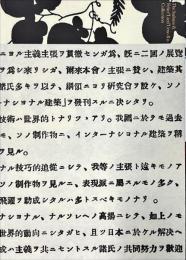 ニヨル主義主張ヲ貫徹センガ爲、既ニ二囘ノ展覽
ヲ爲シ來リシガ、爾來本會ノ主張ニ賛シ、建築其
諸氏多キヲ以テ、綱領ニヨリ研究會ヲ設ケ、ソノ
ナショナル建築」ヲ發刊スルニ決シタリ。
技術ハ世界的トナリツヽアリ。我國ニ於テモ過去
モ、ソノ制作物ニ、インターナショナル建築ヲ
ヲ見ル。
ナル技巧的追從ニシテ、我等ノ主張ト遠キモノア
ソノ制作物ヲ見ルニ、表現派ニ屬スルモノ多ク、
飛躍ヲ助成シタルハ多トスベキモノナリ。
ナショナル、ノ高揚ニシテ、如上ノモ
世界的動向ニシタガヒ、且ツ日本ニ於ケル解決ヘ
成ハ主義ヲ共ニセントスル諸氏ノ共同努力ヲ歡迎